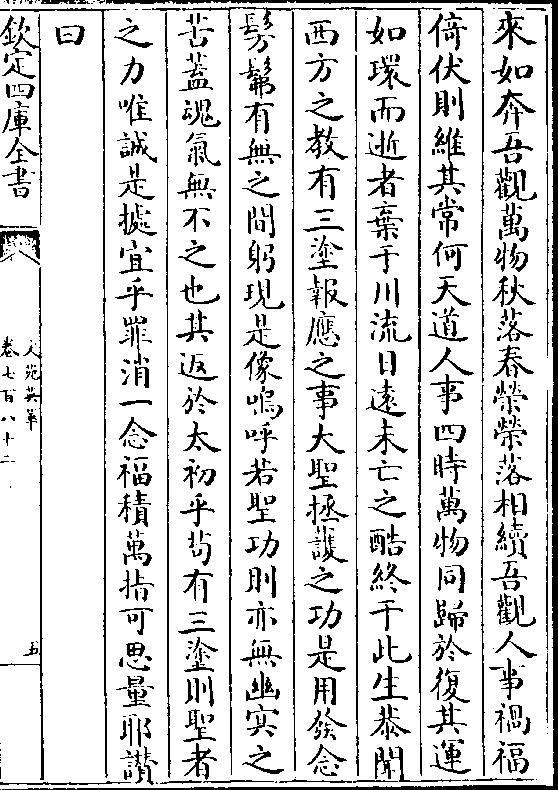 來如奔吾觀萬物秋落春榮榮落相續吾觀人事禍福
倚伏則維其常何天道人事四時萬物同歸於復其運
如環而逝者棄于川流日遠未亡之酷終于此生恭聞
西方之教有三塗報應之事大聖拯護之功是用發念
髣髴有無之間躬現是像嗚呼若聖功則亦無幽冥之
苦蓋魂氣無不之也其返於太初乎茍有三塗則聖者
之力唯誠是據宜乎罪消一念福積萬指可思量耶讃
曰
欽定四庫全書
文苑英華
卷七百八十二
五